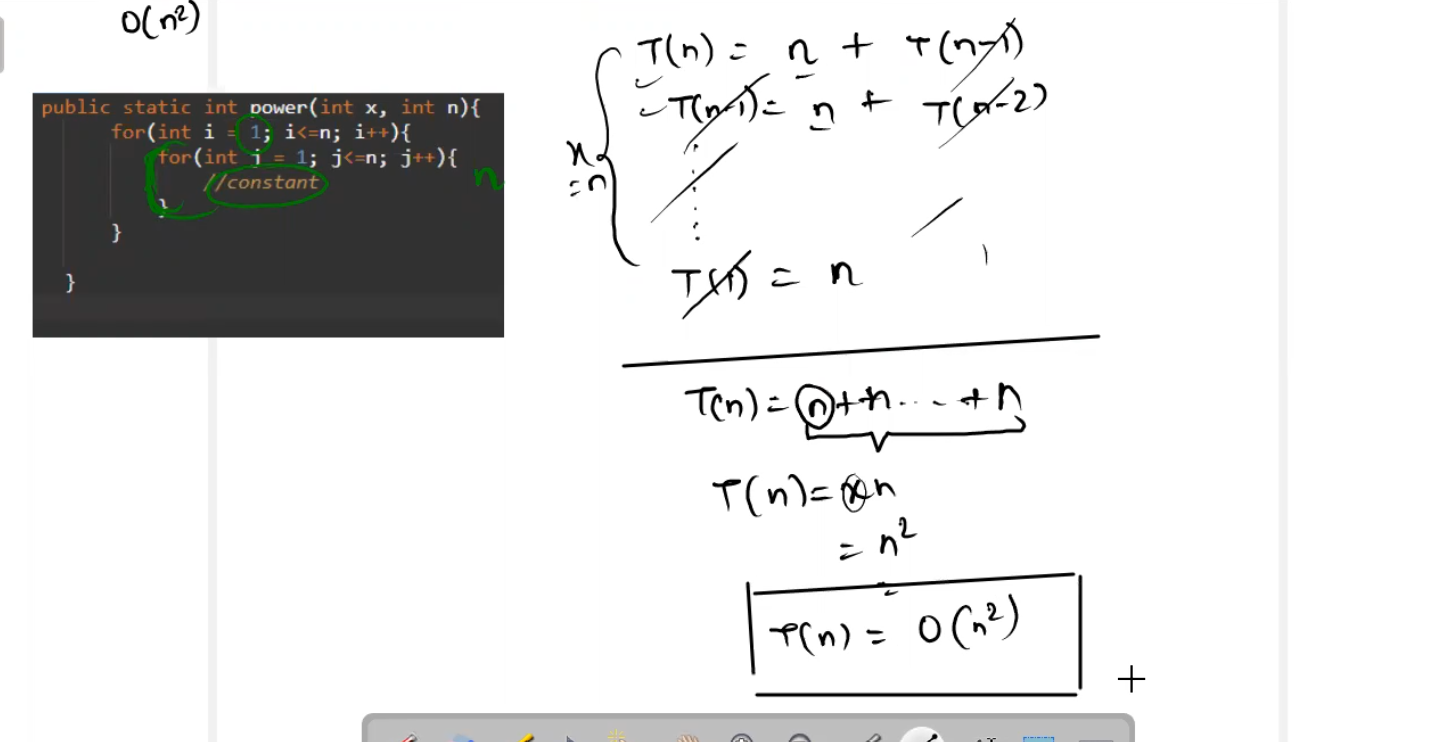 O(n²)
public static int power(int x, int n){
for(int i = 1; i<=n; i++){
for(int j = 1; j<=n; j++){
//constant
}
}
}
n
T(n) = n + T(n-1)
T(n-1) = n + T(n-2)
x
= n
T(1) = n
T(n) = n+n...+n
T(n) = xn
= n²
T(n) = O(n²)